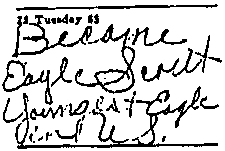 12 Tuesday 63
Became
Eagle Scout
Youngest Eagle
in U.S.